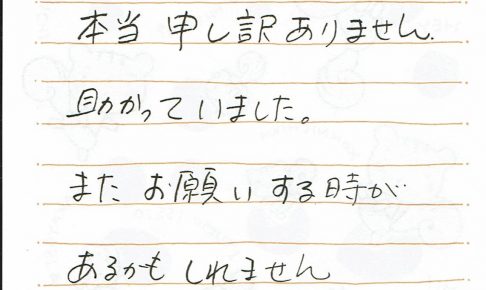 本当 申し訳ありません.
助かっていました。
また お願いする時が
あるかもしれません